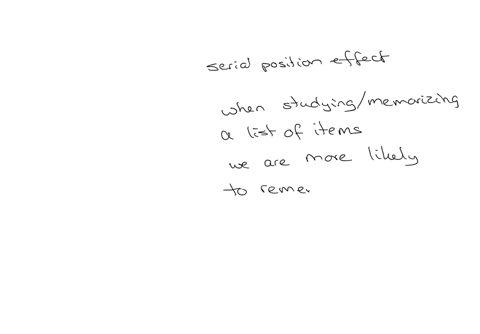 serial position effect
when studying/memorizing
a list of items
we are more likely
to reme